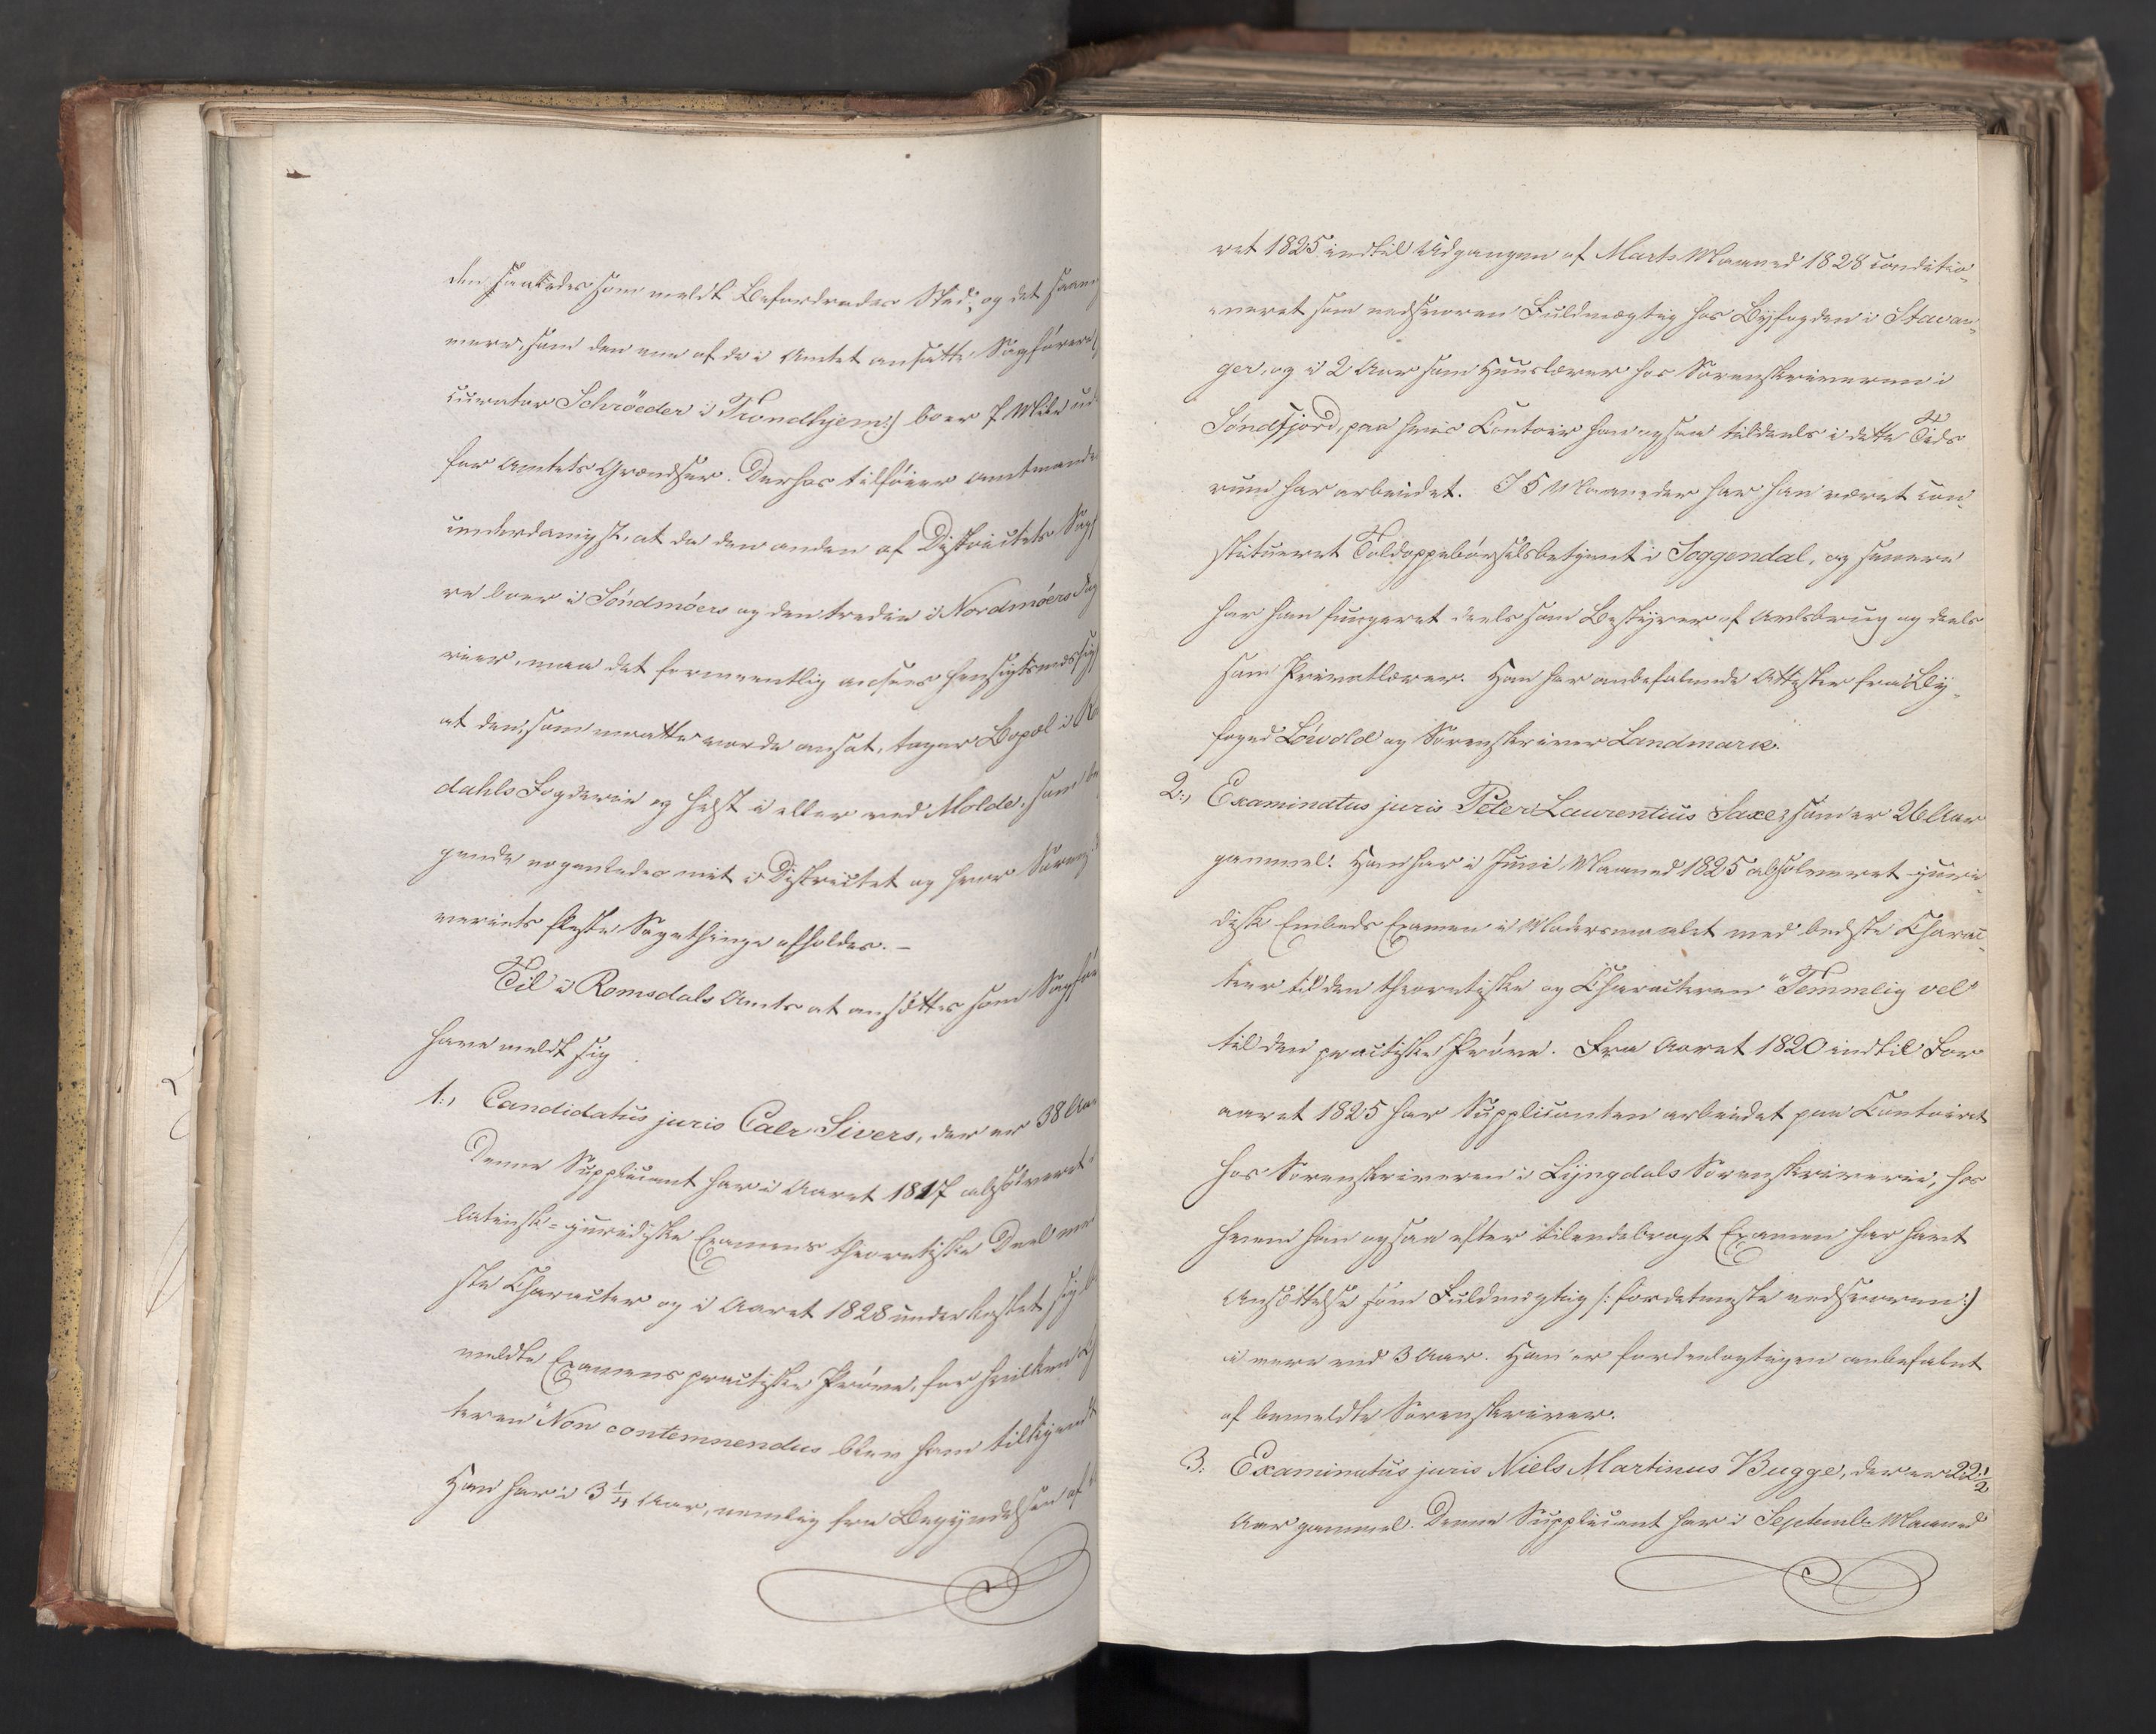 den saaledes som meldt Befordredes Sted; og det saa
mere, som den ene af de i Amtet ansatte Sagførere
curator Schröeder i Trondhjem:) boer 7 Mile ud
for Amtets Grændser. Derhos tilføier Amtmand
underdanigst, at da den anden af Districtets Sag
re boer i Söndmöers og den tredie i Nordmöers Fog
rier, maa det formeentlig ansees hensigtsmæssig
at den, som maatte vorde ansat, tager Bopæl i Ro
dahls Fogderie og helst i eller ved Molde, som be
gende nogenledes midt i Districtet og hvor Sorens
veriets fleste Sagething afholdes. –
Til i Romsdals Amt at ansættes som Sagfö
have meldt sig
1:, Candidatus juris Calr Sivers, der er 38 Aar
Denne Supplicant har i Aaret 1817 absolveret
latinsk-juridiske Examens theoretiske Deel med
ste Character og i Aaret 1828 underkastet sig be
meldte Examens practiske Prøve, for hvilken
teren "Non contemnendus blev ham tilkjendt
Han har i 3 1/4 Aar, nemlig fra Begyndelsen af
ret 1825 indtil Udgangen af Marts Maaned 1828 conditio-
neret som edsvoren Fuldmægtig hos Byfogden i Stavan-
ger, og i 2 Aar som Huuslærer hos Sorenskriveren i
Söndfjord, paa hvis Contoir han ogsaa tildeels i dette Tids
rum har arbeidet. I 5 Maaneder har han været con-
stitueret Toldoppebörselsbetjent i Soggendal, og senere
har han fungeret deels som Bestyrer af Avlsbrug og deels
som Privatlærer. Han har anbefalende Attester fra By-
foged Löwold og Sorenskriver Landmark.
2:, Examinatus juris Peter Laurentius Saxe, som er 26 Aar
gammel. Han har i Juni Maaned 1825 absolveret juri-
disk Embeds Examen i Modersmaalet med bedste Charac-
teer til den theoretiske og Characteren "Temmelig vel"
til den practiske Prøve. Fra Aaret 1820 indtil For
aaret 1825 har Supplicanten arbeidet paa Contoiret
hos Sorenskriveren i Lyngdals Sorenskriverie, hos
hvem han ogsaa efter tilendebragt Examen har havt
Ansættelse som Fuldmægtig /: fordetmeste edsvoren:)
i mere end 3 Aar. Han er fordeelagtigen anbefalet
af bemeldte Sorenskriver.
3: Examinatus juris Niels Martinus Bugge, der er 22 1/2
Aar gammel. Denne Supplicant har i Septembr Maaned